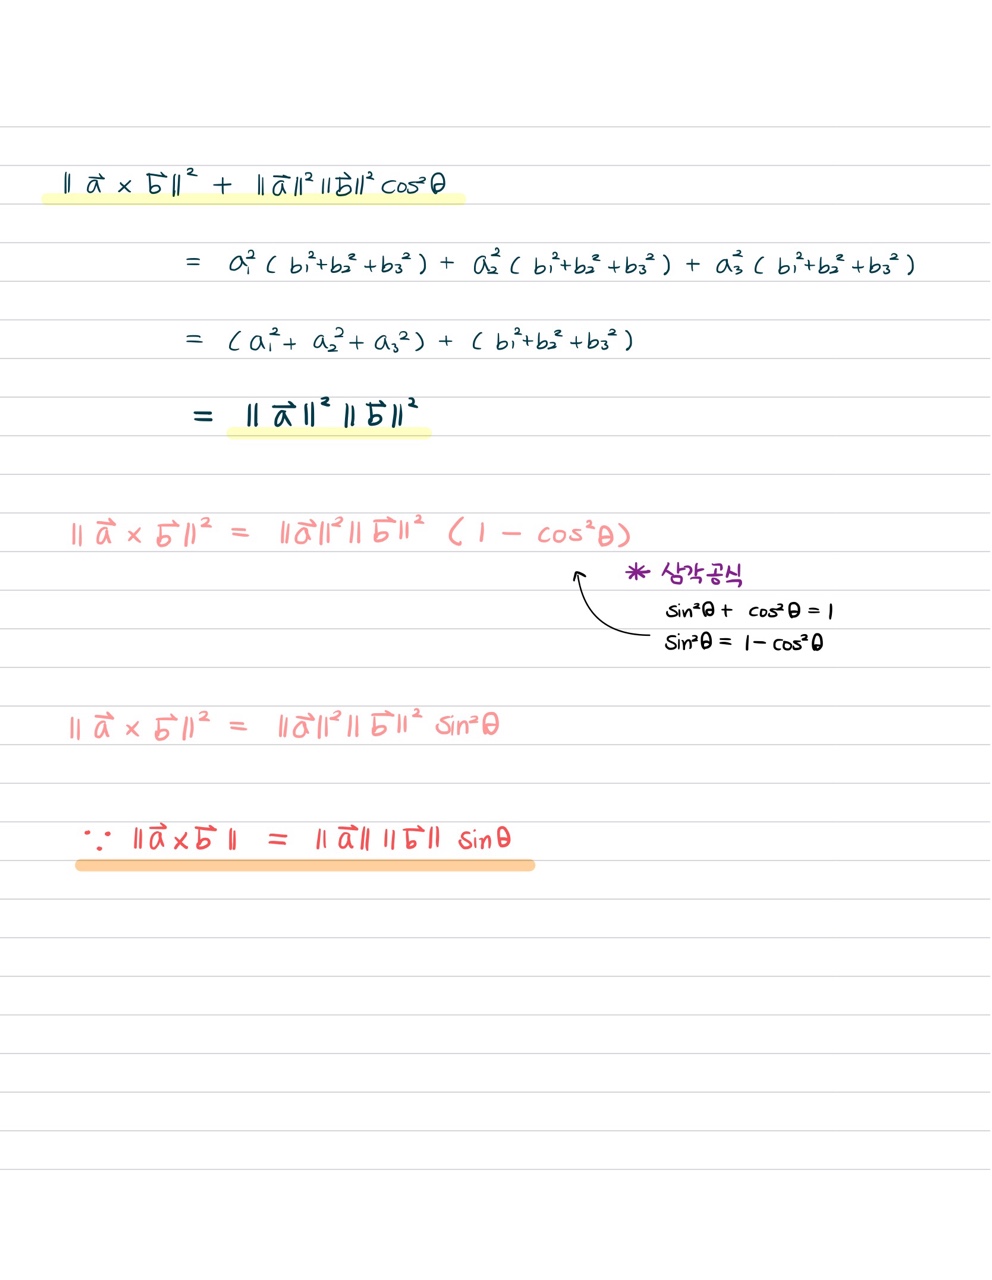 ‖a⃗ × b⃗‖² + ‖a⃗‖²‖b⃗‖² cos²θ
= a₁² (b₁²+b₂²+b₃²) + a₂² (b₁²+b₂²+b₃²) + a₃² (b₁²+b₂²+b₃²)
= (a₁² + a₂² + a₃²) + (b₁²+b₂²+b₃²)
= ‖a⃗‖² ‖b⃗‖²
‖a⃗ × b⃗‖² = ‖a⃗‖²‖b⃗‖² (1 − cos²θ)
* 삼각공식
sin²θ + cos²θ = 1
sin²θ = 1 − cos²θ
‖a⃗ × b⃗‖² = ‖a⃗‖²‖b⃗‖² sin²θ
∵ ‖a⃗ × b⃗‖ = ‖a⃗‖ ‖b⃗‖ sinθ